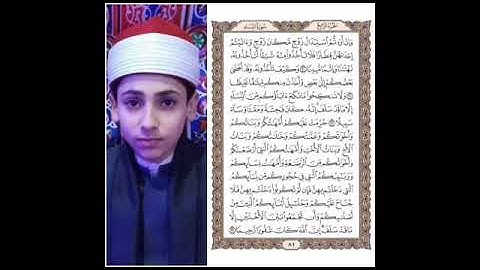 الجزء الرابع
سورة النساء
وَإِنْ أَرَدتُّمُ ٱسْتِبْدَالَ زَوْجٍ مَّكَانَ زَوْجٍ وَءَاتَيْتُمْ
إِحْدَىٰهُنَّ قِنطَارًا فَلَا تَأْخُذُوا۟ مِنْهُ شَيْـًٔا أَتَأْخُذُونَهُۥ
بُهْتَٰنًا وَإِثْمًا مُّبِينًا ٢٠ وَكَيْفَ تَأْخُذُونَهُۥ وَقَدْ أَفْضَىٰ
بَعْضُكُمْ إِلَىٰ بَعْضٍ وَأَخَذْنَ مِنكُم مِّيثَٰقًا غَلِيظًا
٢١ وَلَا تَنكِحُوا۟ مَا نَكَحَ ءَابَآؤُكُم مِّنَ ٱلنِّسَآءِ
إِلَّا مَا قَدْ سَلَفَ إِنَّهُۥ كَانَ فَٰحِشَةً وَمَقْتًا وَسَآءَ
سَبِيلًا ٢٢ حُرِّمَتْ عَلَيْكُمْ أُمَّهَٰتُكُمْ وَبَنَاتُكُمْ
وَأَخَوَٰتُكُمْ وَعَمَّٰتُكُمْ وَخَٰلَٰتُكُمْ وَبَنَاتُ
ٱلْأَخِ وَبَنَاتُ ٱلْأُخْتِ وَأُمَّهَٰتُكُمُ ٱلَّٰتِىٓ أَرْضَعْنَكُمْ
وَأَخَوَٰتُكُم مِّنَ ٱلرَّضَٰعَةِ وَأُمَّهَٰتُ نِسَآئِكُمْ
وَرَبَٰٓئِبُكُمُ ٱلَّٰتِى فِى حُجُورِكُم مِّن نِّسَآئِكُمُ
ٱلَّٰتِى دَخَلْتُم بِهِنَّ فَإِن لَّمْ تَكُونُوا۟ دَخَلْتُم بِهِنَّ فَلَا
جُنَاحَ عَلَيْكُمْ وَحَلَٰٓئِلُ أَبْنَآئِكُمُ ٱلَّذِينَ مِنْ
أَصْلَٰبِكُمْ وَأَن تَجْمَعُوا۟ بَيْنَ ٱلْأُخْتَيْنِ إِلَّا
مَا قَدْ سَلَفَ إِنَّ ٱللَّهَ كَانَ غَفُورًا رَّحِيمًا ٢٣
٨١